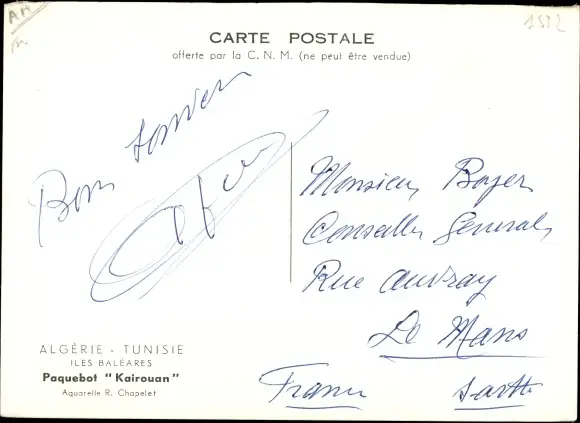 AM
1552
CARTE POSTALE
offerte par la C. N. M. (ne peut être vendue)
Bon souvenir
Monsieur Boyer
Conseiller Général
Rue Auvray
Le Mans
France Sarthe
ALGÉRIE - TUNISIE
ILES BALÉARES
Paquebot "Kairouan"
Aquarelle R. Chapelet